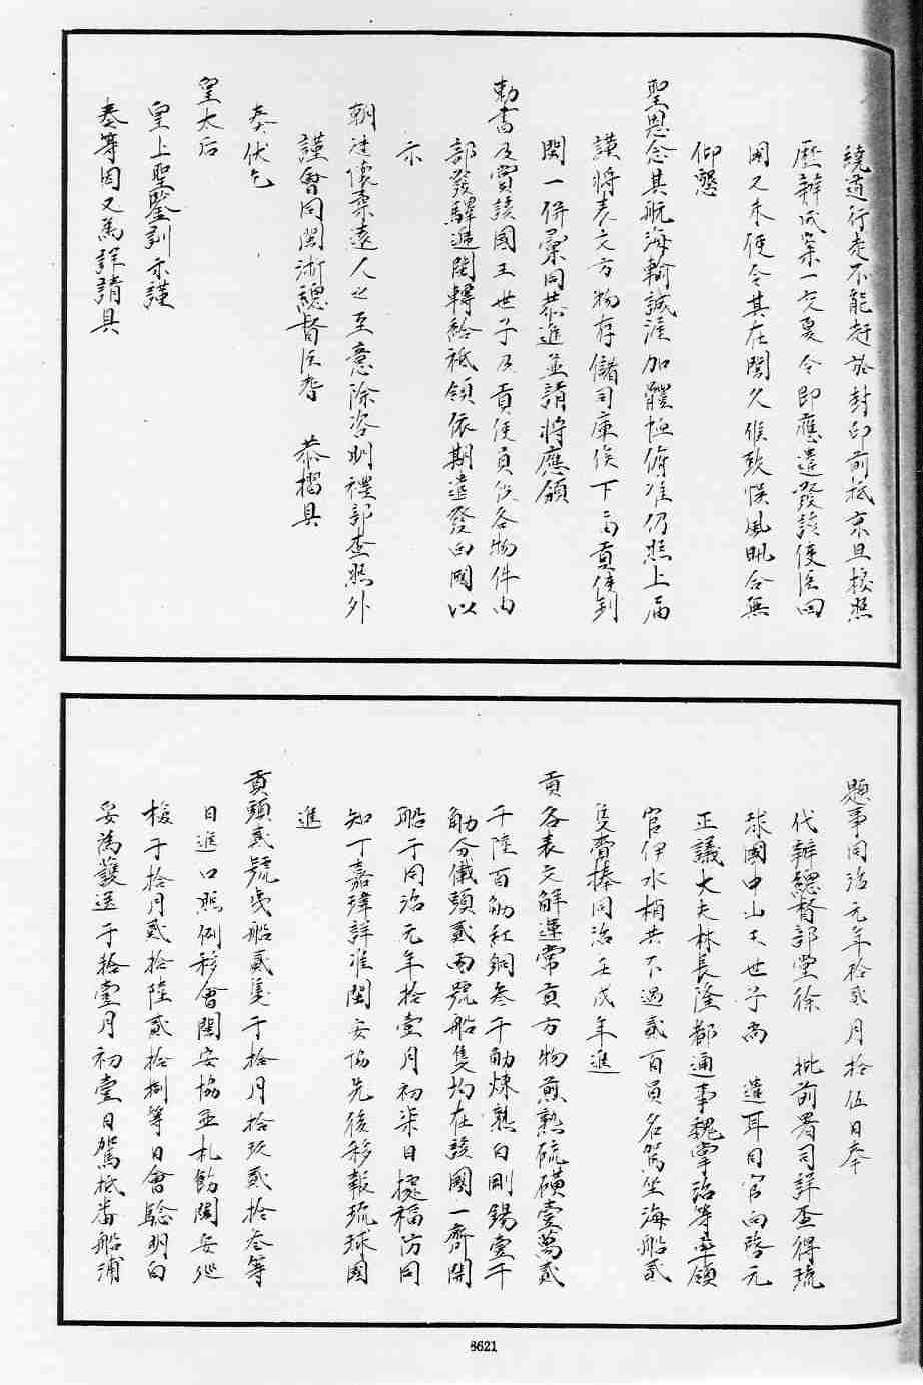 繞道行走不能趕於封印前抵京且核照
歷辦成案一交夏令即應遣發該使臣回
國又未便令其在閩久候致悞風汛合無
仰懇
聖恩念其航海輸誠滙加體恤俯准仍照上屆
謹將表文方物存儲司庫俟下 貢使到
閩一併彙同恭進並請將應領
勅書及賞該國王世子及貢使員役各物件由
部發驛遞閩轉給祗領依期遣發回國以
示
朝廷懷柔遠人之至意除咨明禮部查照外
謹會同閩浙總督臣耆 恭摺具
奏伏乞
皇太后
皇上聖鑒訓示謹
奏等因又為詳請具
題事同治元年拾貳月拾伍日奉
代辦總督部堂徐 批前署司詳查得琉
球國中山王世子尚 遣耳目官向 元
正議大夫林長隆都通事魏掌治等率領
官伊水梢共不過貳百員名駕坐海船貳
隻賫捧同治壬戌年進
貢各表文解運常貢方物煎熟硫磺壹萬貳
千陸百觔紅銅叁千觔煉熟白剛錫壹千
觔分儎頭貳兩號船隻均在該國一齊開
船于同治元年拾壹月初柒日據福防同
知丁嘉瑋詳准閩安協先後移報琉球國
進
貢頭貳號 船貳隻于拾月拾玖貳拾叁等
日進口照例移會閩安協並札飭閩安巡
檢于拾月貳拾陸貳拾捌等日會驗明白
妥為護送于拾壹月初壹日駕抵番船浦
8621